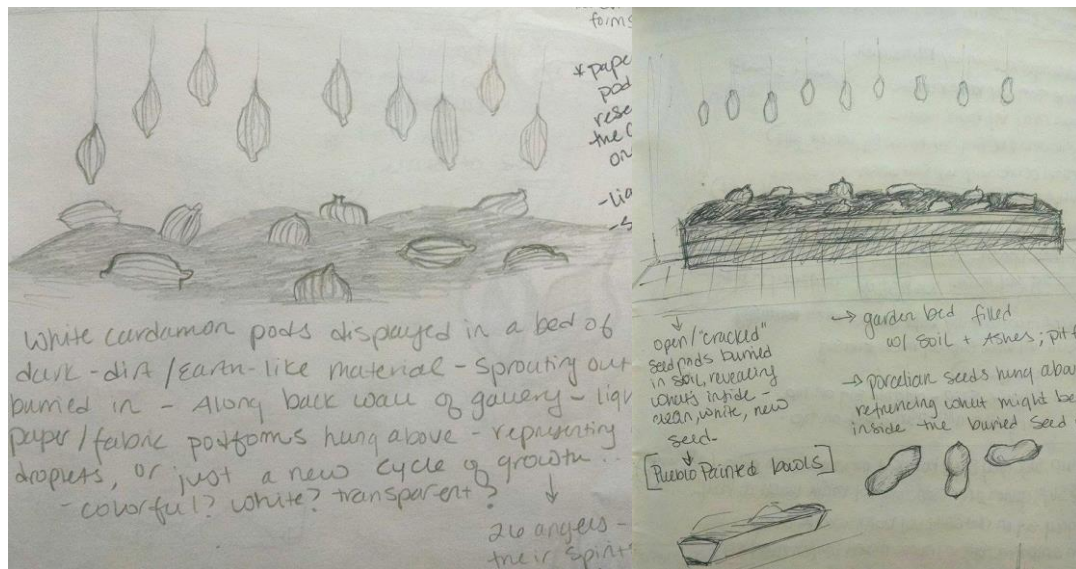 White cardamon pods displayed in a bed of
dark-dirt/Earth-like material - Sprouting out
burried in - Along back wall of gallery -
paper/fabric podforms hung above - representing
droplets, or just a new cycle of growth...
- colorful? White? transparent?
↓
26 angels -
their
form
*
pod
the
on
open/"cracked"
seed pods buried
in soil, revealing
whats inside -
clean, white, new
seed.
↓
[Pueblo Painted bowls]
→ garden bed filled
w/ soil + Ashes;
→ porcelian seeds hung
refrencing what might be
inside the buried seed